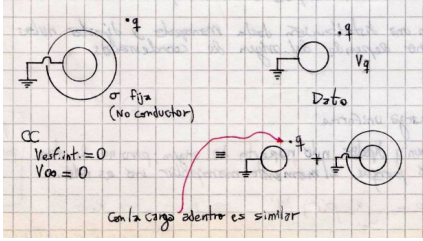 .q
.q
Vq
σ fija
(No conductor)
Dato
CC
Vesf.int. = 0
V∞ = 0
≡
.q
+
Con la carga adentro es similar